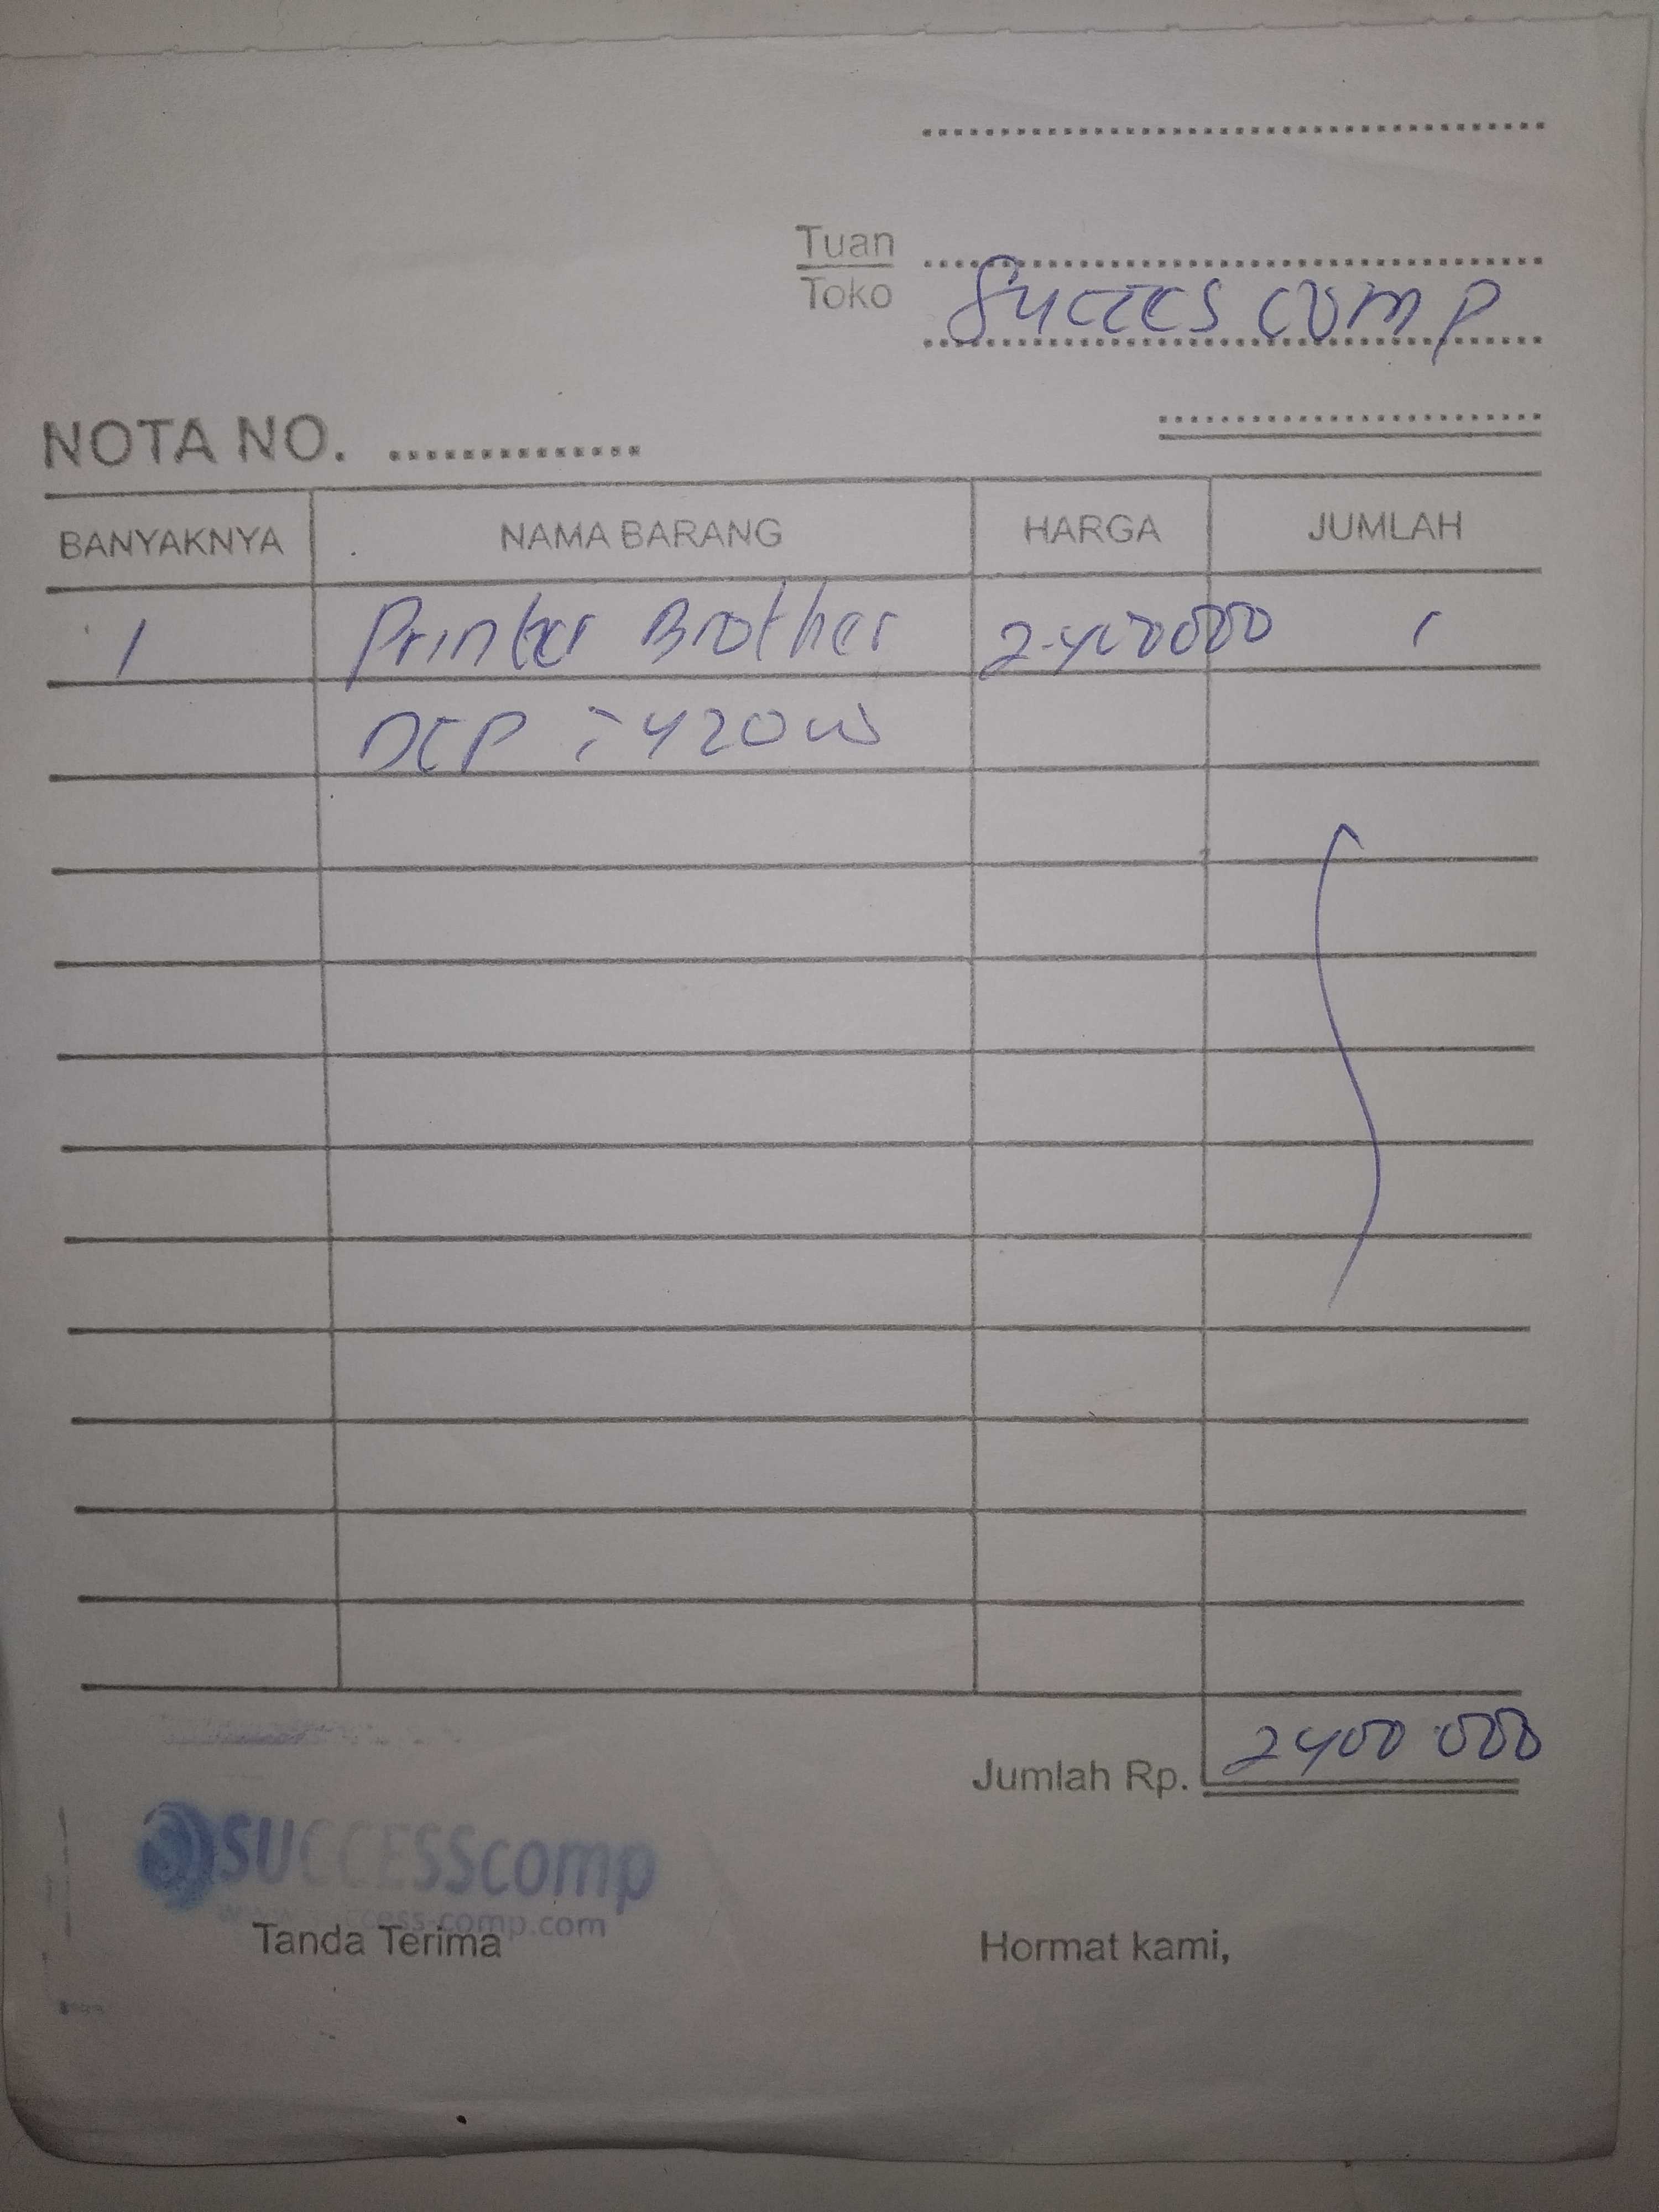 Tuan
Toko
Succes comp
NOTA NO. ..............
BANYAKNYA NAMA BARANG HARGA JUMLAH
1 Printer Brother 2.400000
DCP : 420 W
Jumlah Rp. 2400.000
SUCCESScomp
www.success-comp.com
Tanda Terima Hormat kami,